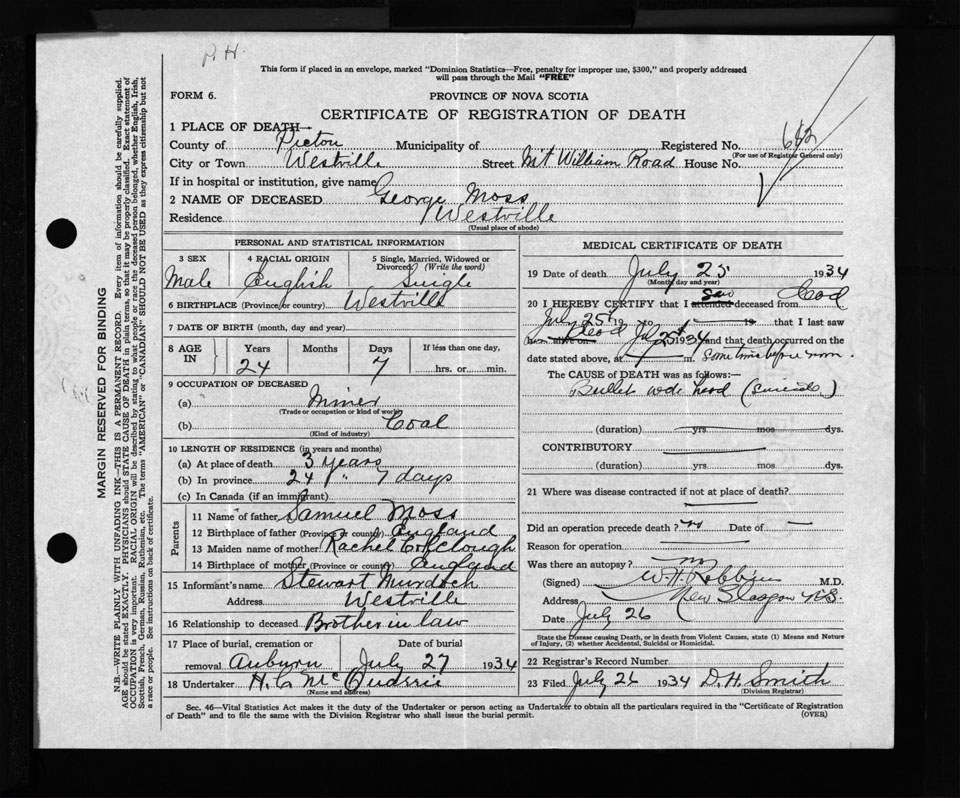 P. H.
This form if placed in an envelope, marked "Dominion Statistics—Free, penalty for improper use, $300," and properly addressed
will pass through the Mail "FREE"
FORM 6.
PROVINCE OF NOVA SCOTIA
CERTIFICATE OF REGISTRATION OF DEATH
1 PLACE OF DEATH—
County of Pictou Municipality of Registered No. 682
(For use of Registrar General only)
City or Town Westville Street Mt William Road House No.
If in hospital or institution, give name
2 NAME OF DECEASED George Moss
Residence Westville
(Usual place of abode)
PERSONAL AND STATISTICAL INFORMATION
3 SEX 4 RACIAL ORIGIN 5 Single, Married, Widowed or
Divorced (Write the word)
Male English Single
6 BIRTHPLACE (Province or country) Westville
7 DATE OF BIRTH (month, day and year)
8 AGE IN Years Months Days If less than one day,
24 7 hrs. or min.
9 OCCUPATION OF DECEASED
(a) Miner
(Trade or occupation or kind of work)
(b) Coal
(Kind of industry)
10 LENGTH OF RESIDENCE (in years and months)
(a) At place of death 3 years
(b) In province 24 " 7 days
(c) In Canada (if an immigrant)
Parents
11 Name of father Samuel Moss
12 Birthplace of father (Province or country) England
13 Maiden name of mother Rachel
14 Birthplace of mother (Province or country) England
15 Informant's name Stewart Murdoch
Address Westville
16 Relationship to deceased Brother in law
17 Place of burial, cremation or Date of burial
removal Auburn July 27 1934
18 Undertaker H. C.
(Name and address)
MEDICAL CERTIFICATE OF DEATH
19 Date of death July 25 1934
(Month, day and year)
20 I HEREBY CERTIFY that I attended saw deceased from dead
July 25th 19 to 19 that I last saw
alive on dead July 25th 1934 and that death occurred on the
date stated above, at m. Sometime before noon.
The CAUSE OF DEATH was as follows:—
Bullet wd. head (suicide)
(duration) yrs mos dys.
CONTRIBUTORY
(duration) yrs mos dys.
21 Where was disease contracted if not at place of death?
Did an operation precede death? no Date of —
Reason for operation
Was there an autopsy? no
(Signed) W. H. Robbins M.D.
Address New Glasgow N.S.
Date July 26
State the Disease causing Death, or in death from Violent Causes, state (1) Means and Nature
of Injury, (2) whether Accidental, Suicidal or Homicidal.
22 Registrar's Record Number
23 Filed July 26 1934 D. H. Smith
(Division Registrar)
Sec. 46—Vital Statistics Act makes it the duty of the Undertaker or person acting as Undertaker to obtain all the particulars required in the "Certificate of Registration
of Death" and to file the same with the Division Registrar who shall issue the burial permit.
(OVER)
MARGIN RESERVED FOR BINDING
N.B.—WRITE PLAINLY WITH UNFADING INK—THIS IS A PERMANENT RECORD. Every item of information should be carefully supplied.
AGE should be stated EXACTLY. PHYSICIANS should STATE CAUSE OF DEATH in plain terms, so that it may be properly classified. Exact statement of
OCCUPATION is very important. RACIAL ORIGIN will be described by stating to what people or race the deceased person belonged, whether English, Irish,
Scottish, French, German, Russian, Ruthenian, etc. The terms "AMERICAN" or "CANADIAN" SHOULD NOT BE USED as they express citizenship but not
a race or people. See instructions on back of certificate.